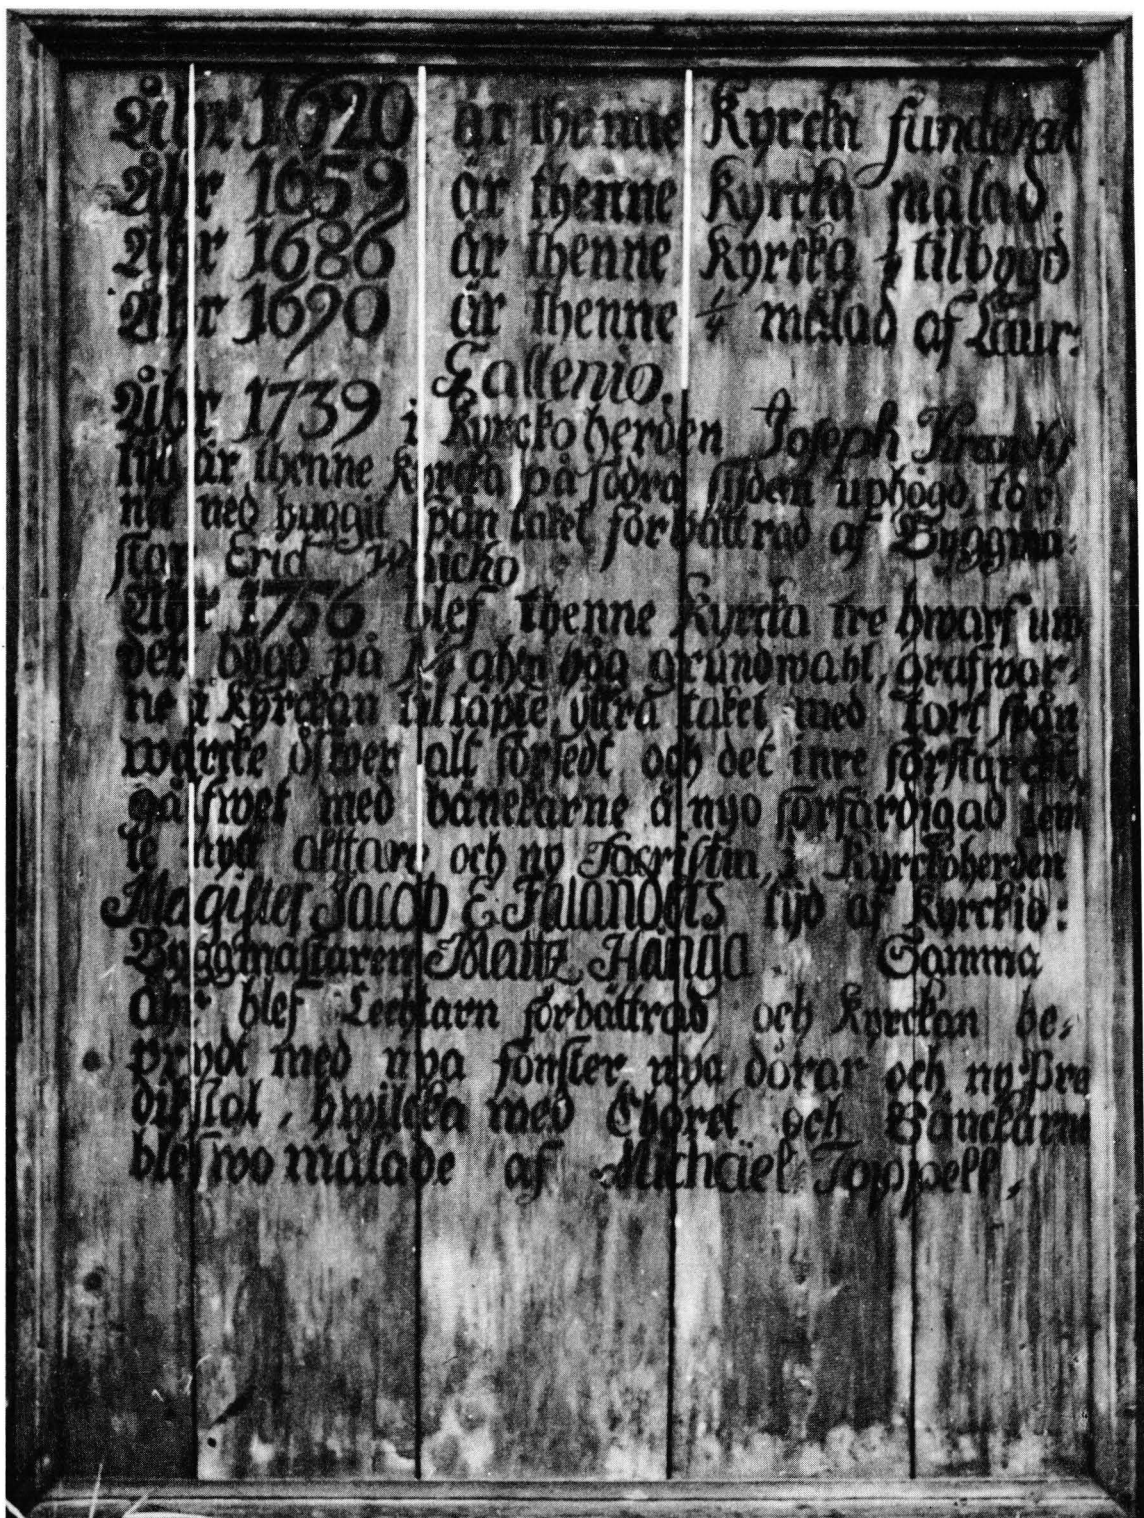 Åhr 1620 är thenne Kyrcka funderat
Åhr 1659 är thenne Kyrcka målad.
Åhr 1686 är thenne Kyrcka tilbygd
Åhr 1690 är thenne 1/4 målad af Laur:
Gallenio.
Åhr 1739 i Kyrckoherden Joseph
tijd är thenne Kyrcka på södra sijdem uphögd,
ned huggit taket förbättrad af Byggmä-
star Erid
Åhr 1736 blef thenne Kyrcka tre hwarf un
der bygd på grundwahl, grafwar-
ne i Kyrckan tiltäpte, yttra taket med tort spån
wärcke öfwer alt försedt och det inre förstärckt,
gålfwet med bänckarne å nyo förfärdigad jem
te nytt alttare och ny Sacristia, i Kyrckoherden
Magister Jacob E. Falanders tijd af Kyrckio:
Byggmästaren Matts Hånga. Samma
åhr blef Lechtarn förbättrad och Kyrckan be-
prydt med nya fönster nya dörar och ny Pre
dikstol, hwilcka med Choret och Bänckarne
blefwo målade af Michaël Toppell,